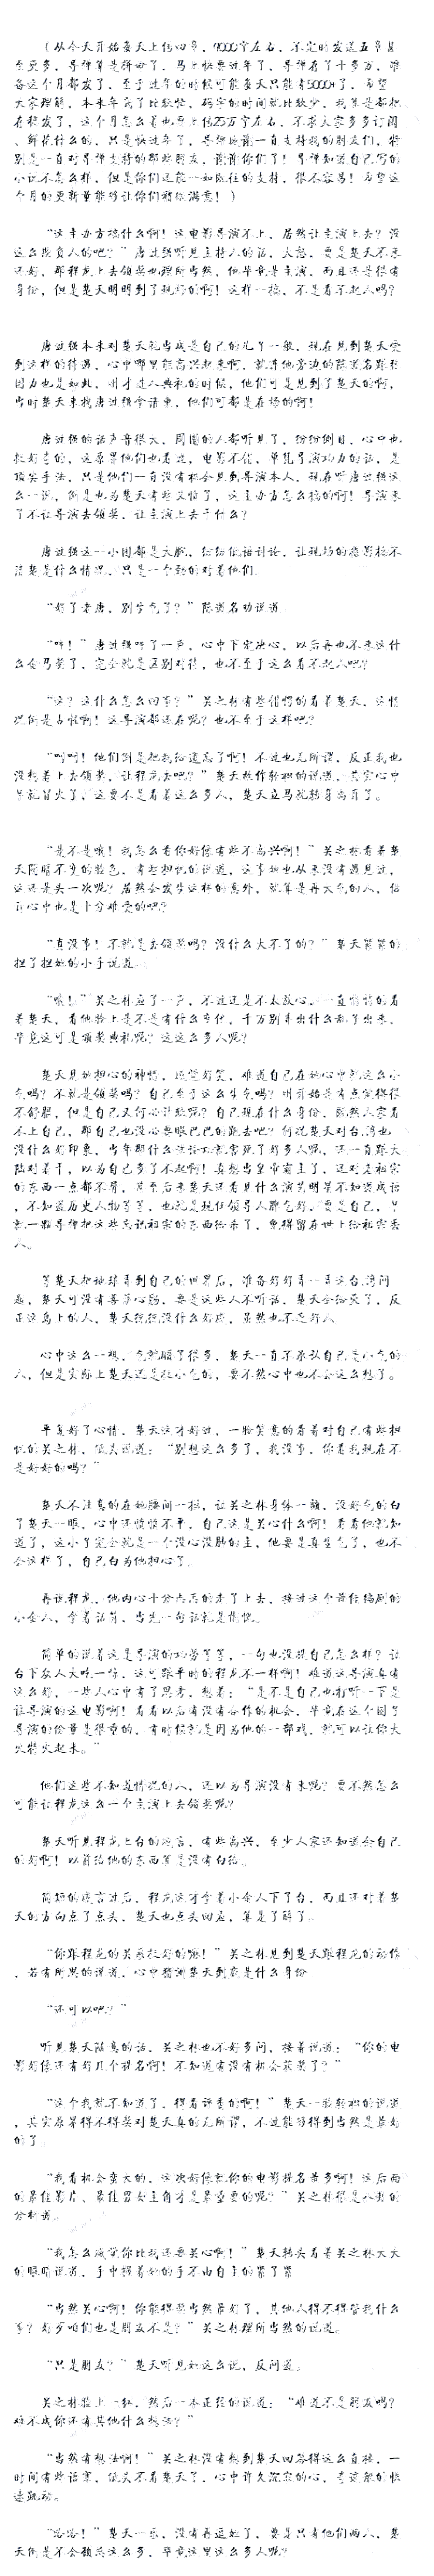 （从今天开始每天上传四章，9000字左右，不定时发送五章甚
至更多，导弹算是拼命了，马上快要过年了，导弹存了十多万，准
备这个月都发了，至于过年的时候可能每天只能有5000+了，希望
大家理解，本来年前了比较忙，码字的时间就比较少，我算是都把
存稿发了，这个月怎么着也要上传25万字左右，不求大家多多订阅
、鲜花什么的，只是快过年了，导弹感谢一直支持我的朋友们，特
别是一直对导弹支持的那些朋友，谢谢你们了！导弹知道自己写的
小说不怎么样，但是你们还能一如既往的支持，很不容易！希望这
个月的更新量能够让你们稍微满意！）
“这主办方搞什么啊？这电影导演不上，居然让主演上去？没
这么欺负人的吧？”唐过强听见主持人的话，大怒，要是楚天不来
还好，那程龙上去领奖也理所当然，他毕竟是主演，而且还是很有
身份，但是楚天明明到了现场的啊！这样一搞，不是看不起人吗？
唐过强本来对楚天就当成是自己的儿子一般，现在见到楚天受
到这样的待遇，心中哪里能高兴起来啊，就连他旁边的陈道名跟
也是如此，刚才进入典礼的时候，他们可是见到了楚天的啊，
当时楚天来找唐过强拿请柬，他们可都是在场的啊！
唐过强的话声音很大，周围的人都听见了，纷纷侧目，心中也
挺好奇的，这原罪他们也看过，电影不错，单凭导演功力的话，是
顶尖手法，只是他们一直没有机会见到导演本人，现在听唐过强这
么一说，倒是也为楚天有些叹惜了，这主办方怎么搞的啊！导演来
了不让导演去领奖，让主演上去干什么？
唐过强这一小团都是大腕，纷纷低语讨论，让现场的摄影搞不
清楚是什么情况，只是一个劲的对着他们。
“好了老唐，别生气了？”陈道名劝说道
“哼！”唐过强哼了一声，心中下定决心，以后再也不来这什
么金马奖了，完全就是区别对待，也不至于这么看不起人吧？
“这？这什么怎么回事？”关之林有些错愕的看着楚天，这情
况倒是古怪啊！这导演都还在呢？也不至于这样吧？
“呵呵！他们倒是把我给遗忘了啊！不过也无所谓，反正我也
没想着上去领奖，让程龙去吧？”楚天故作轻松的说道，其实心中
早就冒火了，这要不是看着这么多人，楚天立马就转身离开了。
“是不是哦！我怎么看你好像有些不高兴啊！”关之林看着楚
天阴晴不定的脸色，有些担忧的说道，这事她也从来没有遇见过，
这还是头一次呢？居然会发生这样的意外，就算是再大气的人，估
计心中也是十分难受的吧？
“真没事！不就是去领奖吗？没什么大不了的？”楚天紧紧的
捏了捏她的小手说道。
“哦！”关之林应了一声，不过还是不太放心，一直悄悄的看
着楚天，看他脸上是不是有什么变化，千万别弄出什么乱子出来，
毕竟这可是颁奖典礼呢？这这么多人呢？
楚天见她担心的神情，还觉好笑，难道自己在她心中就这么小
气吗？不就是领奖吗？自己至于这么生气吗？刚开始是有点觉得很
不舒服，但是自己又何必计较呢？自己现在什么身份，既然人家看
不上自己，那自己也没必要眼巴巴的跑去吧？何况楚天对台.湾也
没什么好印象，当年那什么
等楚天把地球弄到自己的世界后，准备好好弄一弄这台.湾问
题，楚天可没有菩萨心肠，要是这些人不听话，楚天全给灭了，反
正这岛上的人，楚天统统没什么好感，虽然也不乏好人
心中这么一想，气就顺了很多，楚天一直不承认自己是小气的
人，但是实际上楚天还是挺小气的，要不然心中也不会这么想了。
平复好了心情，楚天这才好过，一脸笑意的看着对自己有些担
忧的关之林，低头说道：“别想这么多了，我没事，你看我现在不
是好好的吗？”
楚天不注意的在她腰间一掐，让关之林身体一颤，没好气的白
了楚天一眼，心中还愤愤不平，自己这是关心什么啊！看着他就知
道了，这小子完全就是一个没心没肺的主，他要是真生气了，也不
会这样了，自己白为他担心了。
再说程龙，他内心十分忐忑的走了上去，接过这个最佳编剧的
小金人，拿着话筒，当先一句话就是惭愧。
简单的说着这是导演的功劳等等，一句也没提自己怎么样？让
台下众人大吃一惊，这可跟平时的程龙不一样啊！难道这导演真有
这么好，一些人心中有了思考，想着：“是不是自己也打听一下是
谁导演的这电影啊！看看以后有没有合作的机会，毕竟在这个圈子
导演的份量是很重的，有时候就是因为他的一部戏，就可以让你大
火特火起来。”
他们这些不知道情况的人，还以为导演没有来呢？要不然怎么
可能让程龙这么一个主演上去领奖呢？
楚天听见程龙上台的感言，有些高兴，至少人家还知道念自己
的好啊！以前给他的东西算是没有白给。
简短的感言过后，程龙这才拿着小金人下了台，而且还对着楚
天的方向点了点头，楚天也点头回应，算是了解了。
“你跟程龙的关系挺好的嘛！”关之林见到楚天跟程龙的动作
，若有所思的说道，心中猜测楚天到底是什么身份
“还可以吧？”
听见楚天随意的话，关之林也不好多问，接着说道：“你的电
影好像还有好几个提名啊！不知道有没有机会获奖了？”
“这个我就不知道了，得看评委的啊！”楚天一脸轻松的说道
，其实原罪得不得奖对楚天真的无所谓，不过能够得到当然是最好
的了。
“我看机会蛮大的，这次好像就你的电影提名最多啊！这后面
的最佳影片、最佳男女主角才是最重要的呢？”关之林很是八卦的
分析道。
“我怎么感觉你比我还要关心啊！”楚天转头看着关之林大大
的眼睛说道，手中握着她的手不由自主的紧了紧
“当然关心啊！你能得奖当然最好了，其他人得不得管我什么
事？好歹咱们也是朋友不是？”关之林理所当然的说道。
“只是朋友？”楚天听见她这么说，反问道。
关之林脸上一红，然后一本正经的说道：“难道不是朋友吗？
难不成你还有其他什么想法？”
“当然有想法啊！”关之林没有想到楚天回答得这么直接，一
时间有些语塞，低头不看楚天了，心中许久沉寂的心，奇迹般的快
速跳动。
“哈哈！”楚天一乐，没有再逗她了，要是只有他们两人，楚
天倒是不会顾忌这么多，毕竟这里这么多人呢？